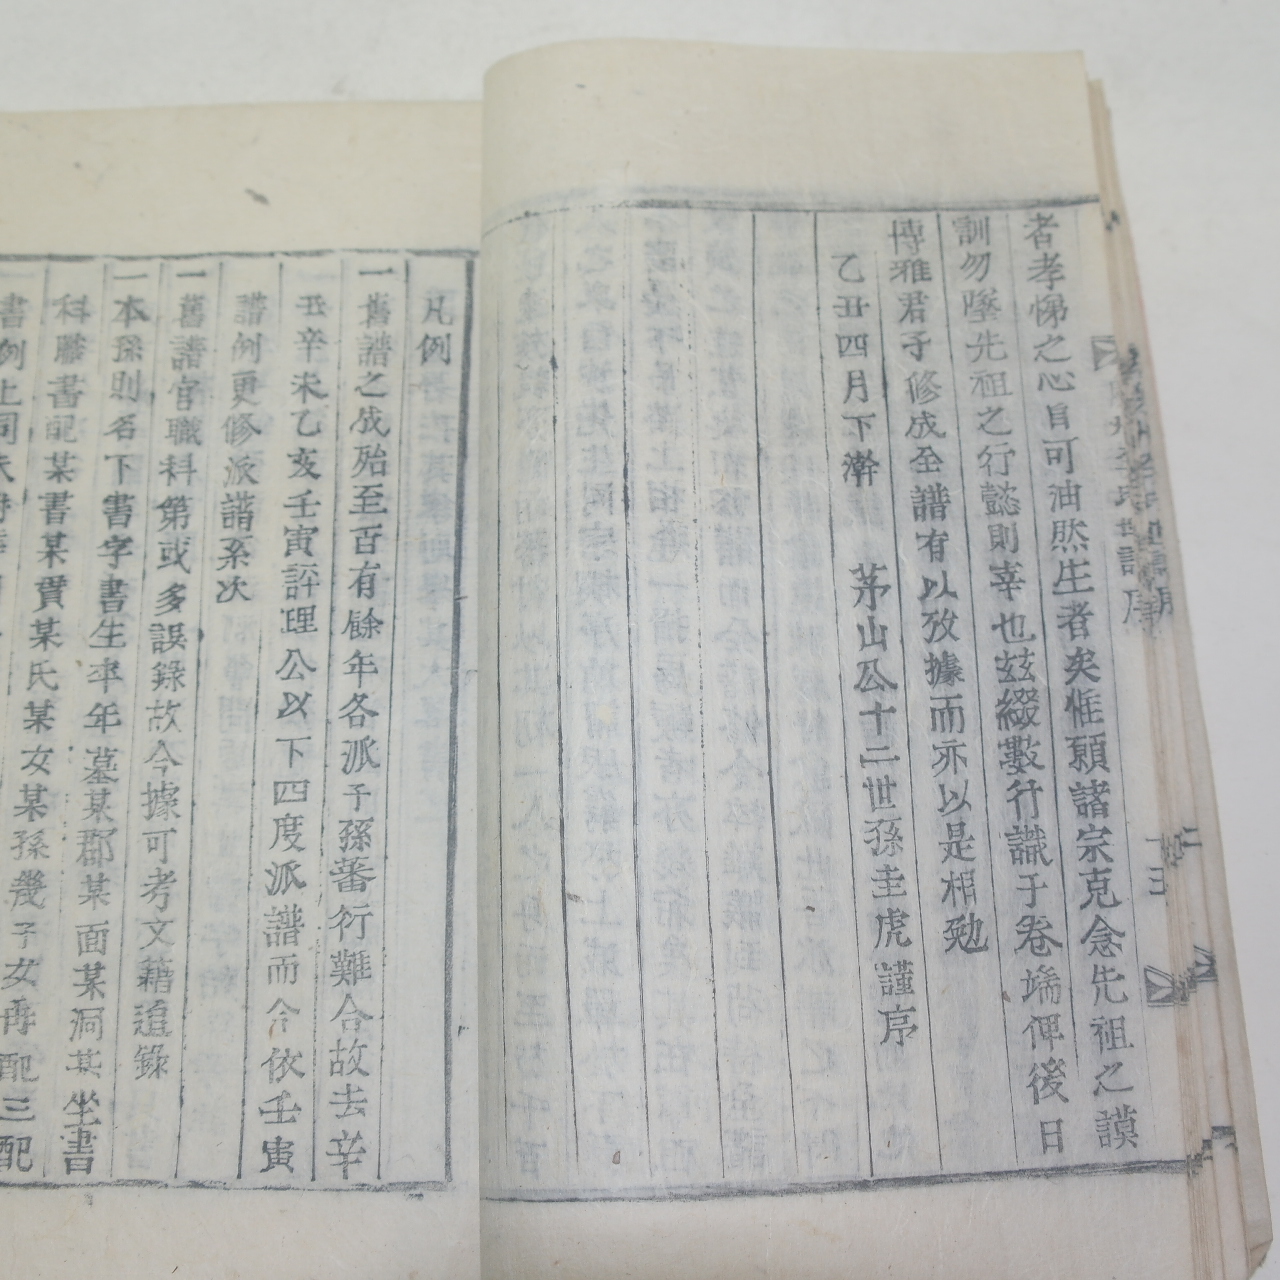 者孝悌之心自可油然生者矣惟願諸宗克念先祖之謨
訓勿墜先祖之行懿則幸也玆綴數行識于卷端俾後日
博雅君子修成全譜有以攷據而亦以是相勉
乙丑四月下澣 茅山公十二世孫圭虎謹序
凡例
一舊譜之成殆至百有餘年各派子孫蕃衍難合故去辛
丑辛未乙亥壬寅評理公以下四度派譜而今依壬寅
譜例更修派譜系次
一舊譜官職科第或多誤錄故今據可考文籍追錄
一本孫則名下書字書生卒年墓某郡某面某洞某坐書
科膴書配某書某貫某氏某女某孫幾子女再配三配
書例上同